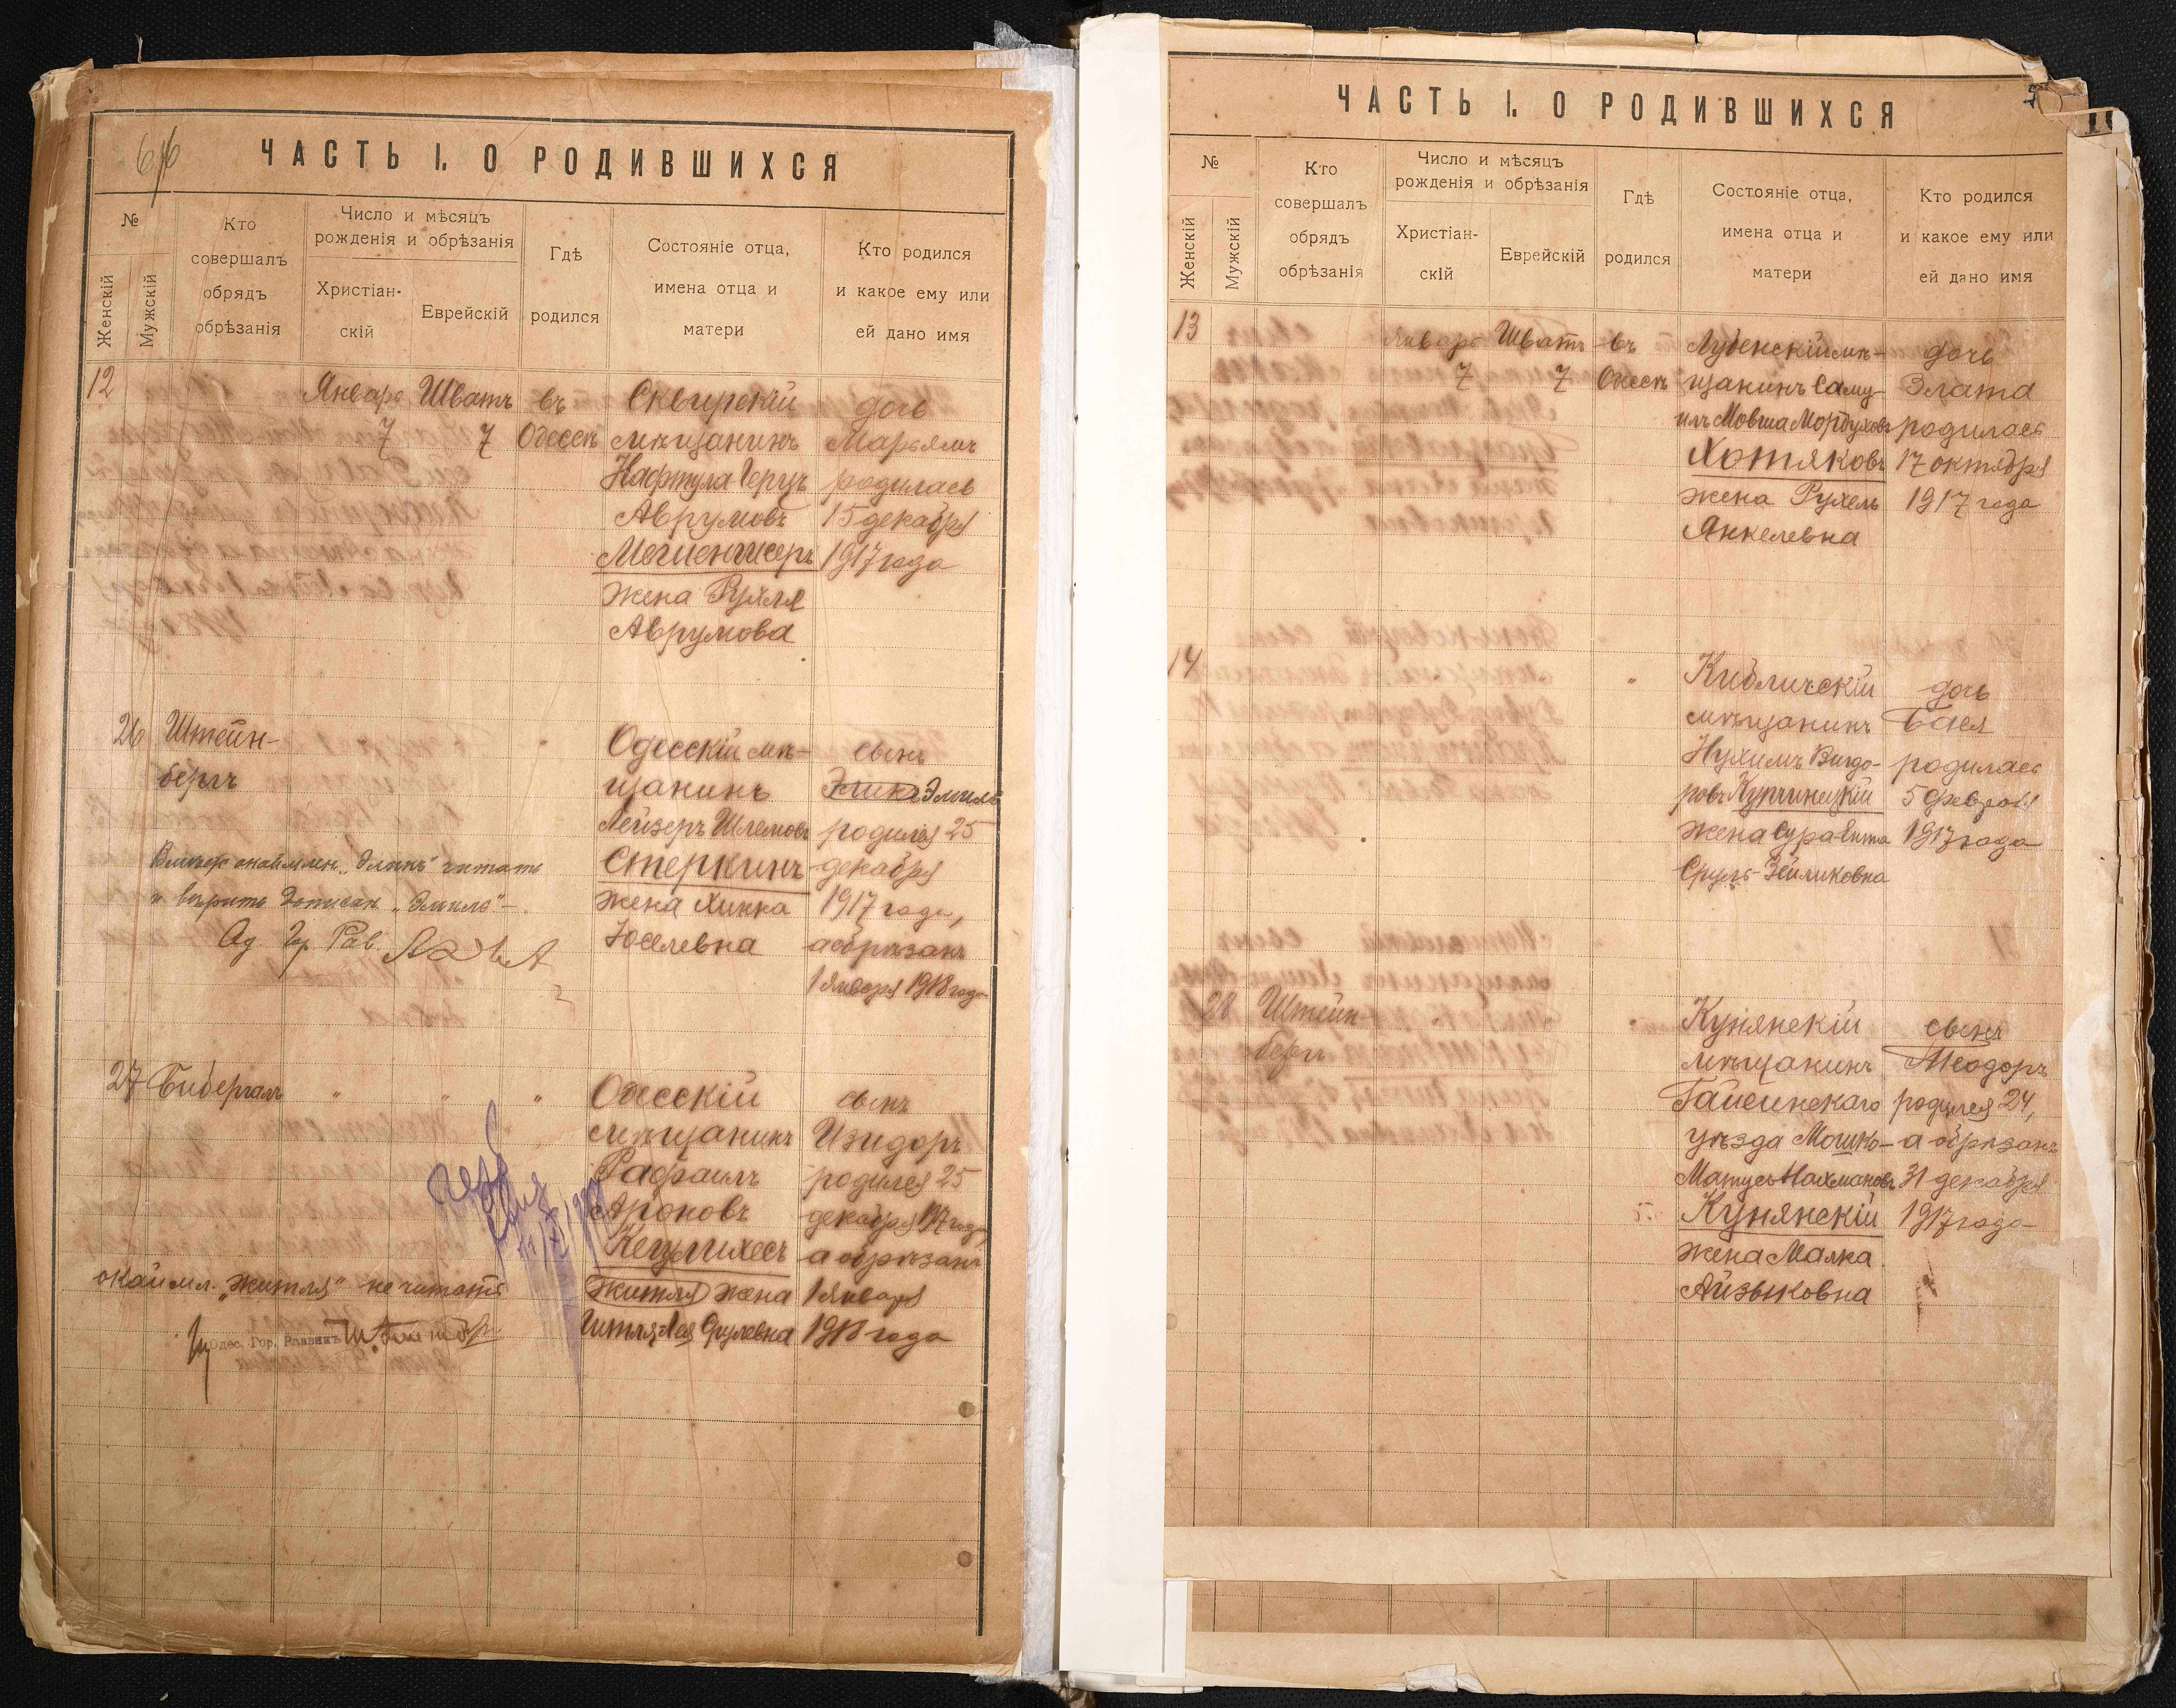 6/6
ЧАСТЬ I. О РОДИВШИХСЯ
№
Женскій
Мужскій
Кто
совершалъ
обрядъ
обрѣзанія
Число и мѣсяцъ
рожденія и обрѣзанія
Христіан-
скій
Еврейскій
Гдѣ
родился
Состояніе отца,
имена отца и
матери
Кто родился
и какое ему или
ей дано имя
12
Январь
7
Шватъ
7
въ
Одессѣ
Сквирскій
мѣщанинъ
Нафтула Герцъ
Аврумовъ
жена Рухля
Аврумова
дочь
Марьямъ
родилась
15 декабря
1917 года
26
Штейн-
бергъ
"
Одесскій мѣ-
щанинъ
Лейзеръ Шлемовъ
Стеркинъ
жена Хинка
Юселевна
сынъ
Эмиль
родился 25
декабря
1917 года,
а обрѣзанъ
1 января 1918 года
"Эликъ" читать
и вѣрить "Эмиль"
Рав.
27
Бибергалъ
"
"
"
Одесскій
мѣщанинъ
Рафаилъ
Ароновъ
Кецлихесъ
Житля жена
Гитля Лея Срулевна
сынъ
Изидоръ
родился 25
декабря 1917 года,
а обрѣзанъ
1 января
1918 года
окаймл. "Житля" не читать
Одес. Гор. Раввинъ
ЧАСТЬ I. О РОДИВШИХСЯ
№
Женскій
Мужскій
Кто
совершалъ
обрядъ
обрѣзанія
Число и мѣсяцъ
рожденія и обрѣзанія
Христіан-
скій
Еврейскій
Гдѣ
родился
Состояніе отца,
имена отца и
матери
Кто родился
и какое ему или
ей дано имя
13
Январь
7
Шватъ
7
въ
Одессѣ
Лубенскій мѣ-
щанинъ Саму-
илъ Мовша Мордуховъ
Хотяковъ
жена Рухель
Янкелевна
дочь
Злата
родилась
17 октября
1917 года
14
"
Кибличскій
мѣщанинъ
Нухимъ Вигдо-
ровъ Купчинецкій
жена Сура Ента
Сруль-Зейликовна
дочь
Бася
родилась
5 февраля
1917 года
28
Штейн-
бергъ
"
Кунянскій
мѣщанинъ
Гайсинскаго
уѣзда Мошко-
Матусъ Нахмановъ
Кунянскій
жена Малка
Айзыковна
сынъ
Теодоръ
родился 24,
а обрѣзанъ
31 декабря
1917 года